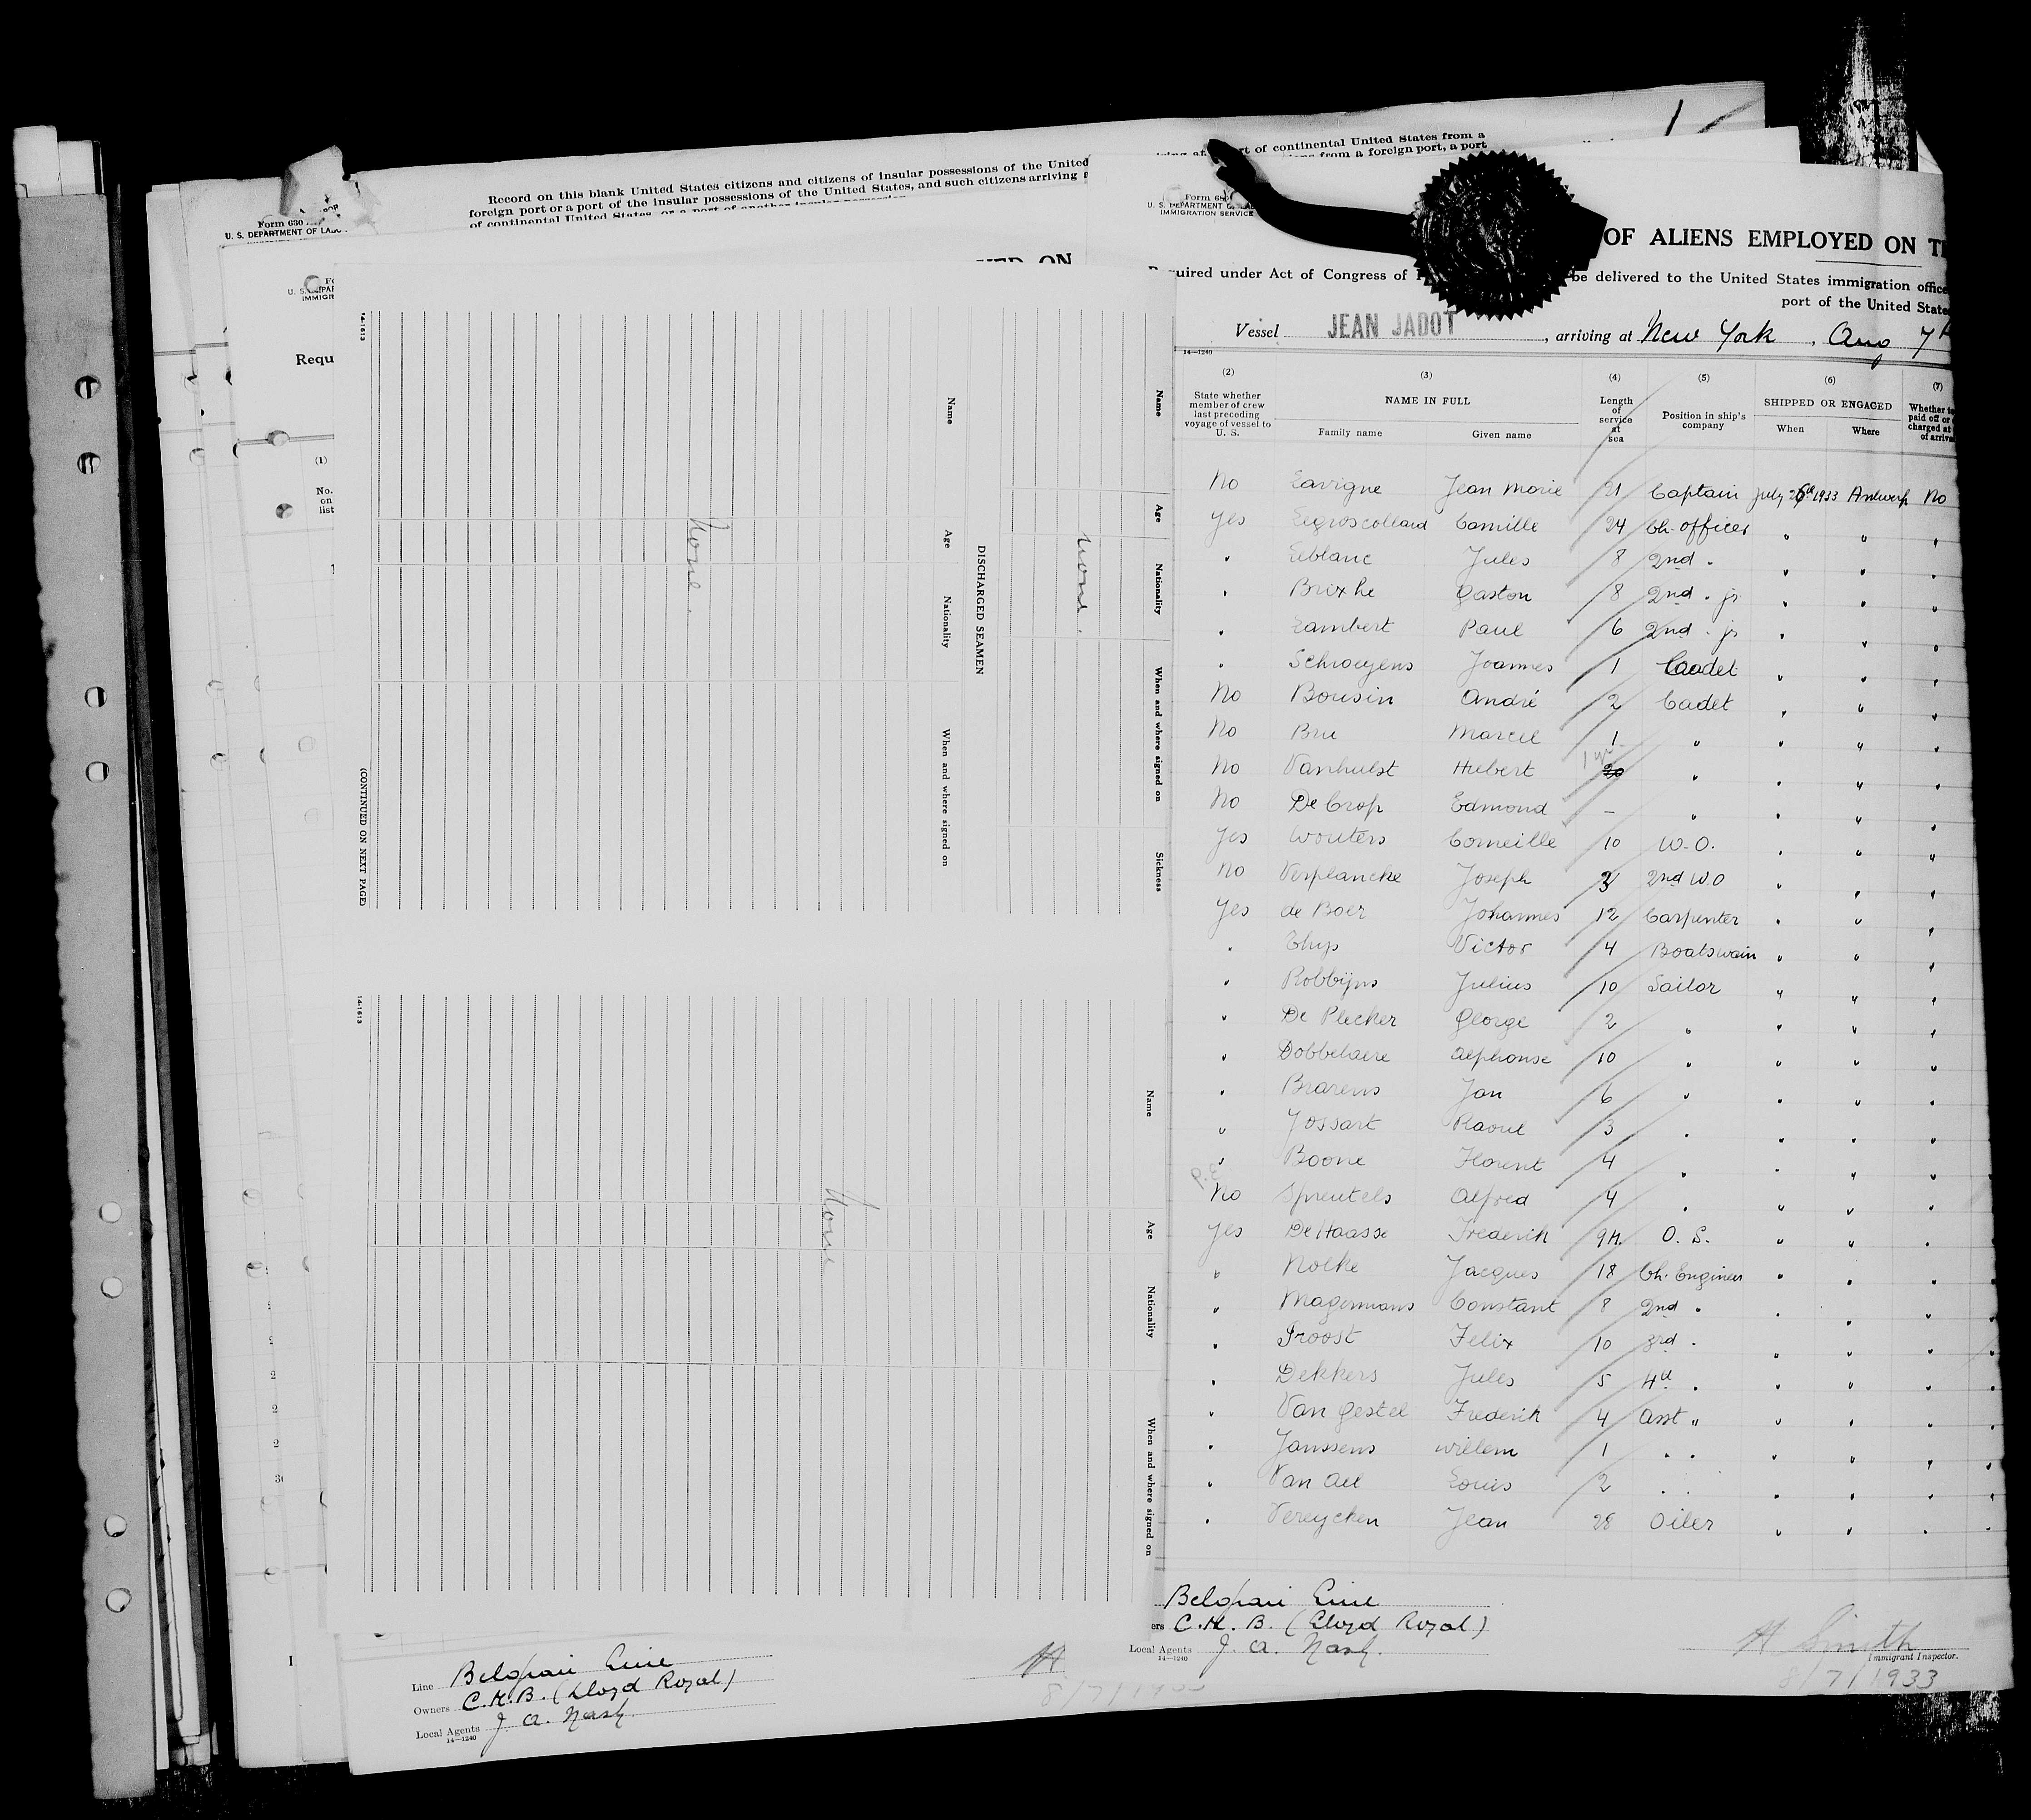 Record on this blank United States citizens and citizens of insular possessions of the United
foreign port or a port of the insular possessions of the United States, and such citizens arriving a
of continental United States, or a port of another insular possession
Form 630
U. S. DEPARTMENT OF LABO
Requ
(1)
No.
on
list
14-1613
(CONTINUED ON NEXT PAGE)
Name
Age
Nationality
When and where signed on
Sickness
None.
DISCHARGED SEAMEN
Name
Age
Nationality
When and where signed on
None.
14-1613
Name
Age
Nationality
When and where signed on
None
Line Belgian Line
Owners C.M.B. (Lloyd Royal)
Local Agents J. A. Nash.
14-1240
rt of continental United States from a
ions from a foreign port, a port
Form 68
U. S. DEPARTMENT OF LAB
IMMIGRATION SERVICE
OF ALIENS EMPLOYED ON TH
quired under Act of Congress of be delivered to the United States immigration office
port of the United State
Vessel JEAN JADOT, arriving at New York, Aug 7th
14-1240
(2) (3) (4) (5) (6) (7)
State whether member of crew last preceding voyage of vessel to U. S.
NAME IN FULL
Family name Given name
Length of service at sea
Position in ship's company
SHIPPED OR ENGAGED
When Where
Whether to paid off or charged at of arriva
No Lavigne Jean Marie 21 Captain July 26th 1933 Antwerp No
Yes Legroscollard Camille 24 Ch. officer " " "
" Leblanc Jules 8 2nd " " " "
" Brixhe Gaston 8 2nd " jr " " "
" Lambert Paul 6 2nd " jr " " "
" Schroeyens Joannes 1 Cadet " " "
No Bousin André 2 Cadet " " "
No Bru Marcel 1 " " " "
No Vanhulst Hubert 1 yr 20 " " " "
No De Crop Edmond - " " " "
Yes Wouters Corneille 10 W.O. " " "
No Verplancke Joseph 2nd W.O " " "
Yes de Boer Johannes 12 Carpenter " " "
" Thys Victor 4 Boatswain " " "
" Robbijns Julius 10 Sailor " " "
" De Plecker George 2 " " " "
" Dobbelaere Alphonse 10 " " " "
" Brarens Jan 6 " " " "
" Jossart Raoul 3 " " " "
" Boone Florent 4 " " " "
No Spreutels Alfred 4 " " " "
Yes De Haasse Frederik 9M. O. S. " " "
" Nolke Jacques 18 Ch. Engineer " " "
" Magermans Constant 8 2nd " " " "
" Proost Felix 10 3rd " " " "
" Dekkers Jules 5 4th " " " "
" Van Gestel Frederik 4 Asst " " " "
" Janssens Willem 1 " " " " "
" Van Ael Louis 2 " " " " "
" Vereycken Jean 28 Oiler " " "
Belgian Line
ers C.M.B. (Lloyd Royal)
Local Agents J. A. Nash.
14-1240
H Smith
Immigrant Inspector.
8/7/1933